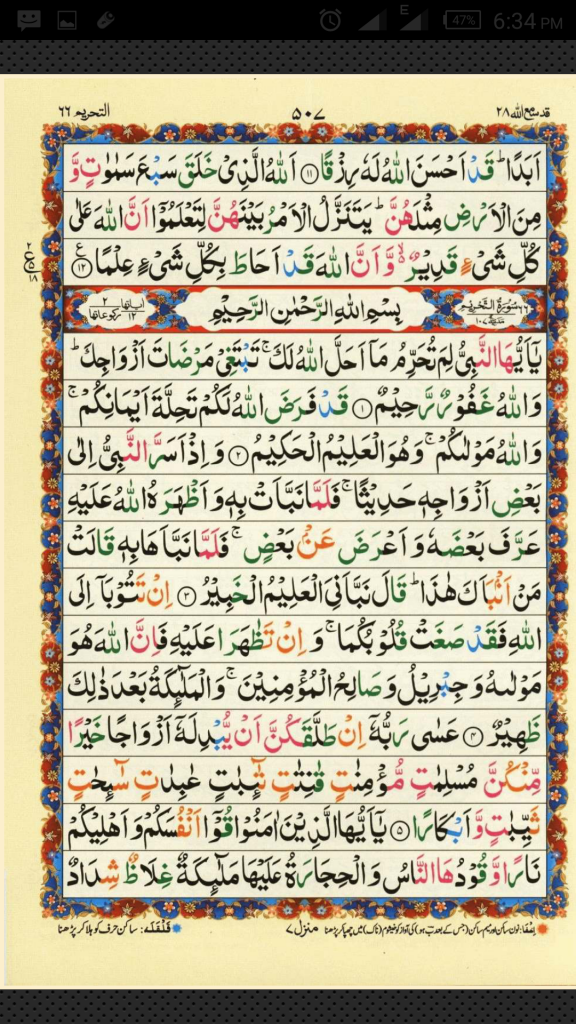 E 47% 6:34 PM
التحريم ٦٦ ۵۰۷ قد سمع الله ٢٨
اَبَدًا ؕ قَدْ اَحْسَنَ اللّٰهُ لَهٗ رِزْقًا ۝۱۱ اَللّٰهُ الَّذِیْ خَلَقَ سَبْعَ سَمٰوٰتٍ وَّ
مِنَ الْاَرْضِ مِثْلَهُنَّ ؕ یَتَنَزَّلُ الْاَمْرُ بَیْنَهُنَّ لِتَعْلَمُوْۤا اَنَّ اللّٰهَ عَلٰی
كُلِّ شَیْءٍ قَدِیْرٌ ۙ۬ وَّ اَنَّ اللّٰهَ قَدْ اَحَاطَ بِكُلِّ شَیْءٍ عِلْمًا ۝۱۲
ع ٢ ۵ ١٨
٦٦ سُوْرَةُ التَّحْرِيْمِ مَدَنِيَّةٌ ١٠٧ بِسْمِ اللّٰهِ الرَّحْمٰنِ الرَّحِیْمِ اٰیاتها ١٢ رکوعاتها ٢
یٰۤاَیُّهَا النَّبِیُّ لِمَ تُحَرِّمُ مَاۤ اَحَلَّ اللّٰهُ لَكَ ۚ تَبْتَغِیْ مَرْضَاتَ اَزْوَاجِكَ ؕ
وَ اللّٰهُ غَفُوْرٌ رَّحِیْمٌ ۝۱ قَدْ فَرَضَ اللّٰهُ لَكُمْ تَحِلَّةَ اَیْمَانِكُمْ ۚ
وَ اللّٰهُ مَوْلٰىكُمْ ۚ وَ هُوَ الْعَلِیْمُ الْحَكِیْمُ ۝۲ وَ اِذْ اَسَرَّ النَّبِیُّ اِلٰی
بَعْضِ اَزْوَاجِهٖ حَدِیْثًا ۚ فَلَمَّا نَبَّاَتْ بِهٖ وَ اَظْهَرَهُ اللّٰهُ عَلَیْهِ
عَرَّفَ بَعْضَهٗ وَ اَعْرَضَ عَنْۢ بَعْضٍ ۚ فَلَمَّا نَبَّاَهَا بِهٖ قَالَتْ
مَنْ اَنْۢبَاَكَ هٰذَا ؕ قَالَ نَبَّاَنِیَ الْعَلِیْمُ الْخَبِیْرُ ۝۳ اِنْ تَتُوْبَاۤ اِلَی
اللّٰهِ فَقَدْ صَغَتْ قُلُوْبُكُمَا ۚ وَ اِنْ تَظٰهَرَا عَلَیْهِ فَاِنَّ اللّٰهَ هُوَ
مَوْلٰىهُ وَ جِبْرِیْلُ وَ صَالِحُ الْمُؤْمِنِیْنَ ۚ وَ الْمَلٰٓىِٕكَةُ بَعْدَ ذٰلِكَ
ظَهِیْرٌ ۝۴ عَسٰی رَبُّهٗۤ اِنْ طَلَّقَكُنَّ اَنْ یُّبْدِلَهٗۤ اَزْوَاجًا خَیْرًا
مِّنْكُنَّ مُسْلِمٰتٍ مُّؤْمِنٰتٍ قٰنِتٰتٍ تٰٓىِٕبٰتٍ عٰبِدٰتٍ سٰٓىِٕحٰتٍ
ثَیِّبٰتٍ وَّ اَبْكَارًا ۝۵ یٰۤاَیُّهَا الَّذِیْنَ اٰمَنُوْا قُوْۤا اَنْفُسَكُمْ وَ اَهْلِیْكُمْ
نَارًا وَّ قُوْدُهَا النَّاسُ وَ الْحِجَارَةُ عَلَیْهَا مَلٰٓىِٕكَةٌ غِلَاظٌ شِدَادٌ
اِخْفَا: نون ساکن اور میم ساکن (جس کے بعد ب ہو) کی آواز کو خیشوم (ناک) میں چھپا کر پڑھنا منزل ۷ قَلْقَلَة: ساکن حرف کو ہلا کر پڑھنا